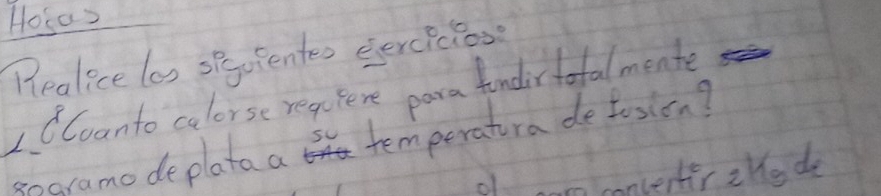 Hojas
Realice los siguientes ejercicios:
1_ ¿Cuanto calor se requiere para fundir totalmente
gramo de plata a su temperatura de fusión?
convertir 2Kg de